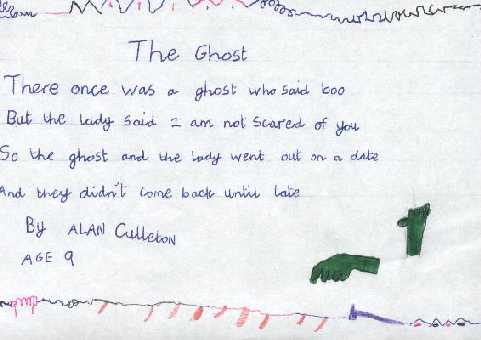 The Ghost
There once was a ghost who said boo
But the lady said I am not scared of you
So the ghost and the lady went out on a date
And they didn't come back until late
By ALAN Culleton
AGE 9